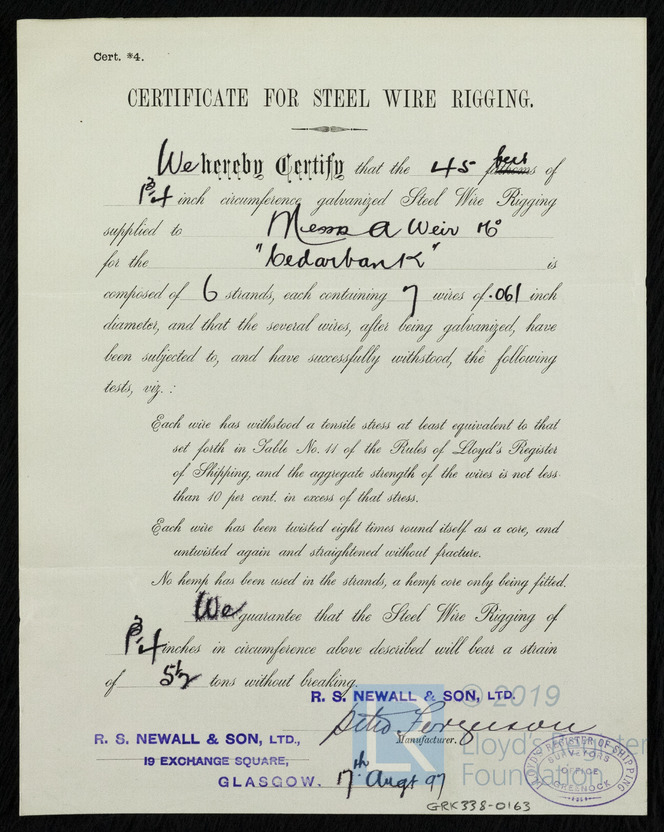 Cert. *4.
CERTIFICATE FOR STEEL WIRE RIGGING.
We hereby Certify that the 45 fathoms of
1 3/4 inch circumference galvanized Steel Wire Rigging
supplied to Messrs A Weir & Co
for the "Cedarbank" is
composed of 6 strands, each containing 7 wires of .061 inch
diameter, and that the several wires, after being galvanized, have
been subjected to, and have successfully withstood, the following
tests, viz. :
Each wire has withstood a tensile stress at least equivalent to that
set forth in Table No. 11 of the Rules of Lloyd's Register
of Shipping, and the aggregate strength of the wires is not less
than 10 per cent. in excess of that stress.
Each wire has been twisted eight times round itself as a core, and
untwisted again and straightened without fracture.
No hemp has been used in the strands, a hemp core only being fitted.
We guarantee that the Steel Wire Rigging of
1 3/4 inches in circumference above described will bear a strain
of 5 1/2 tons without breaking.
R. S. NEWALL & SON, LTD.
© 2019
Ferguson
R. S. NEWALL & SON, LTD.,
Manufacturer.
Lloyd's Register
19 EXCHANGE SQUARE,
Foundation
GLASGOW.
17th Augt 97
LLOYD'S REGISTER OF SHIPPING
SURVEYORS
OFFICE
GREENOCK
GRK338-0163